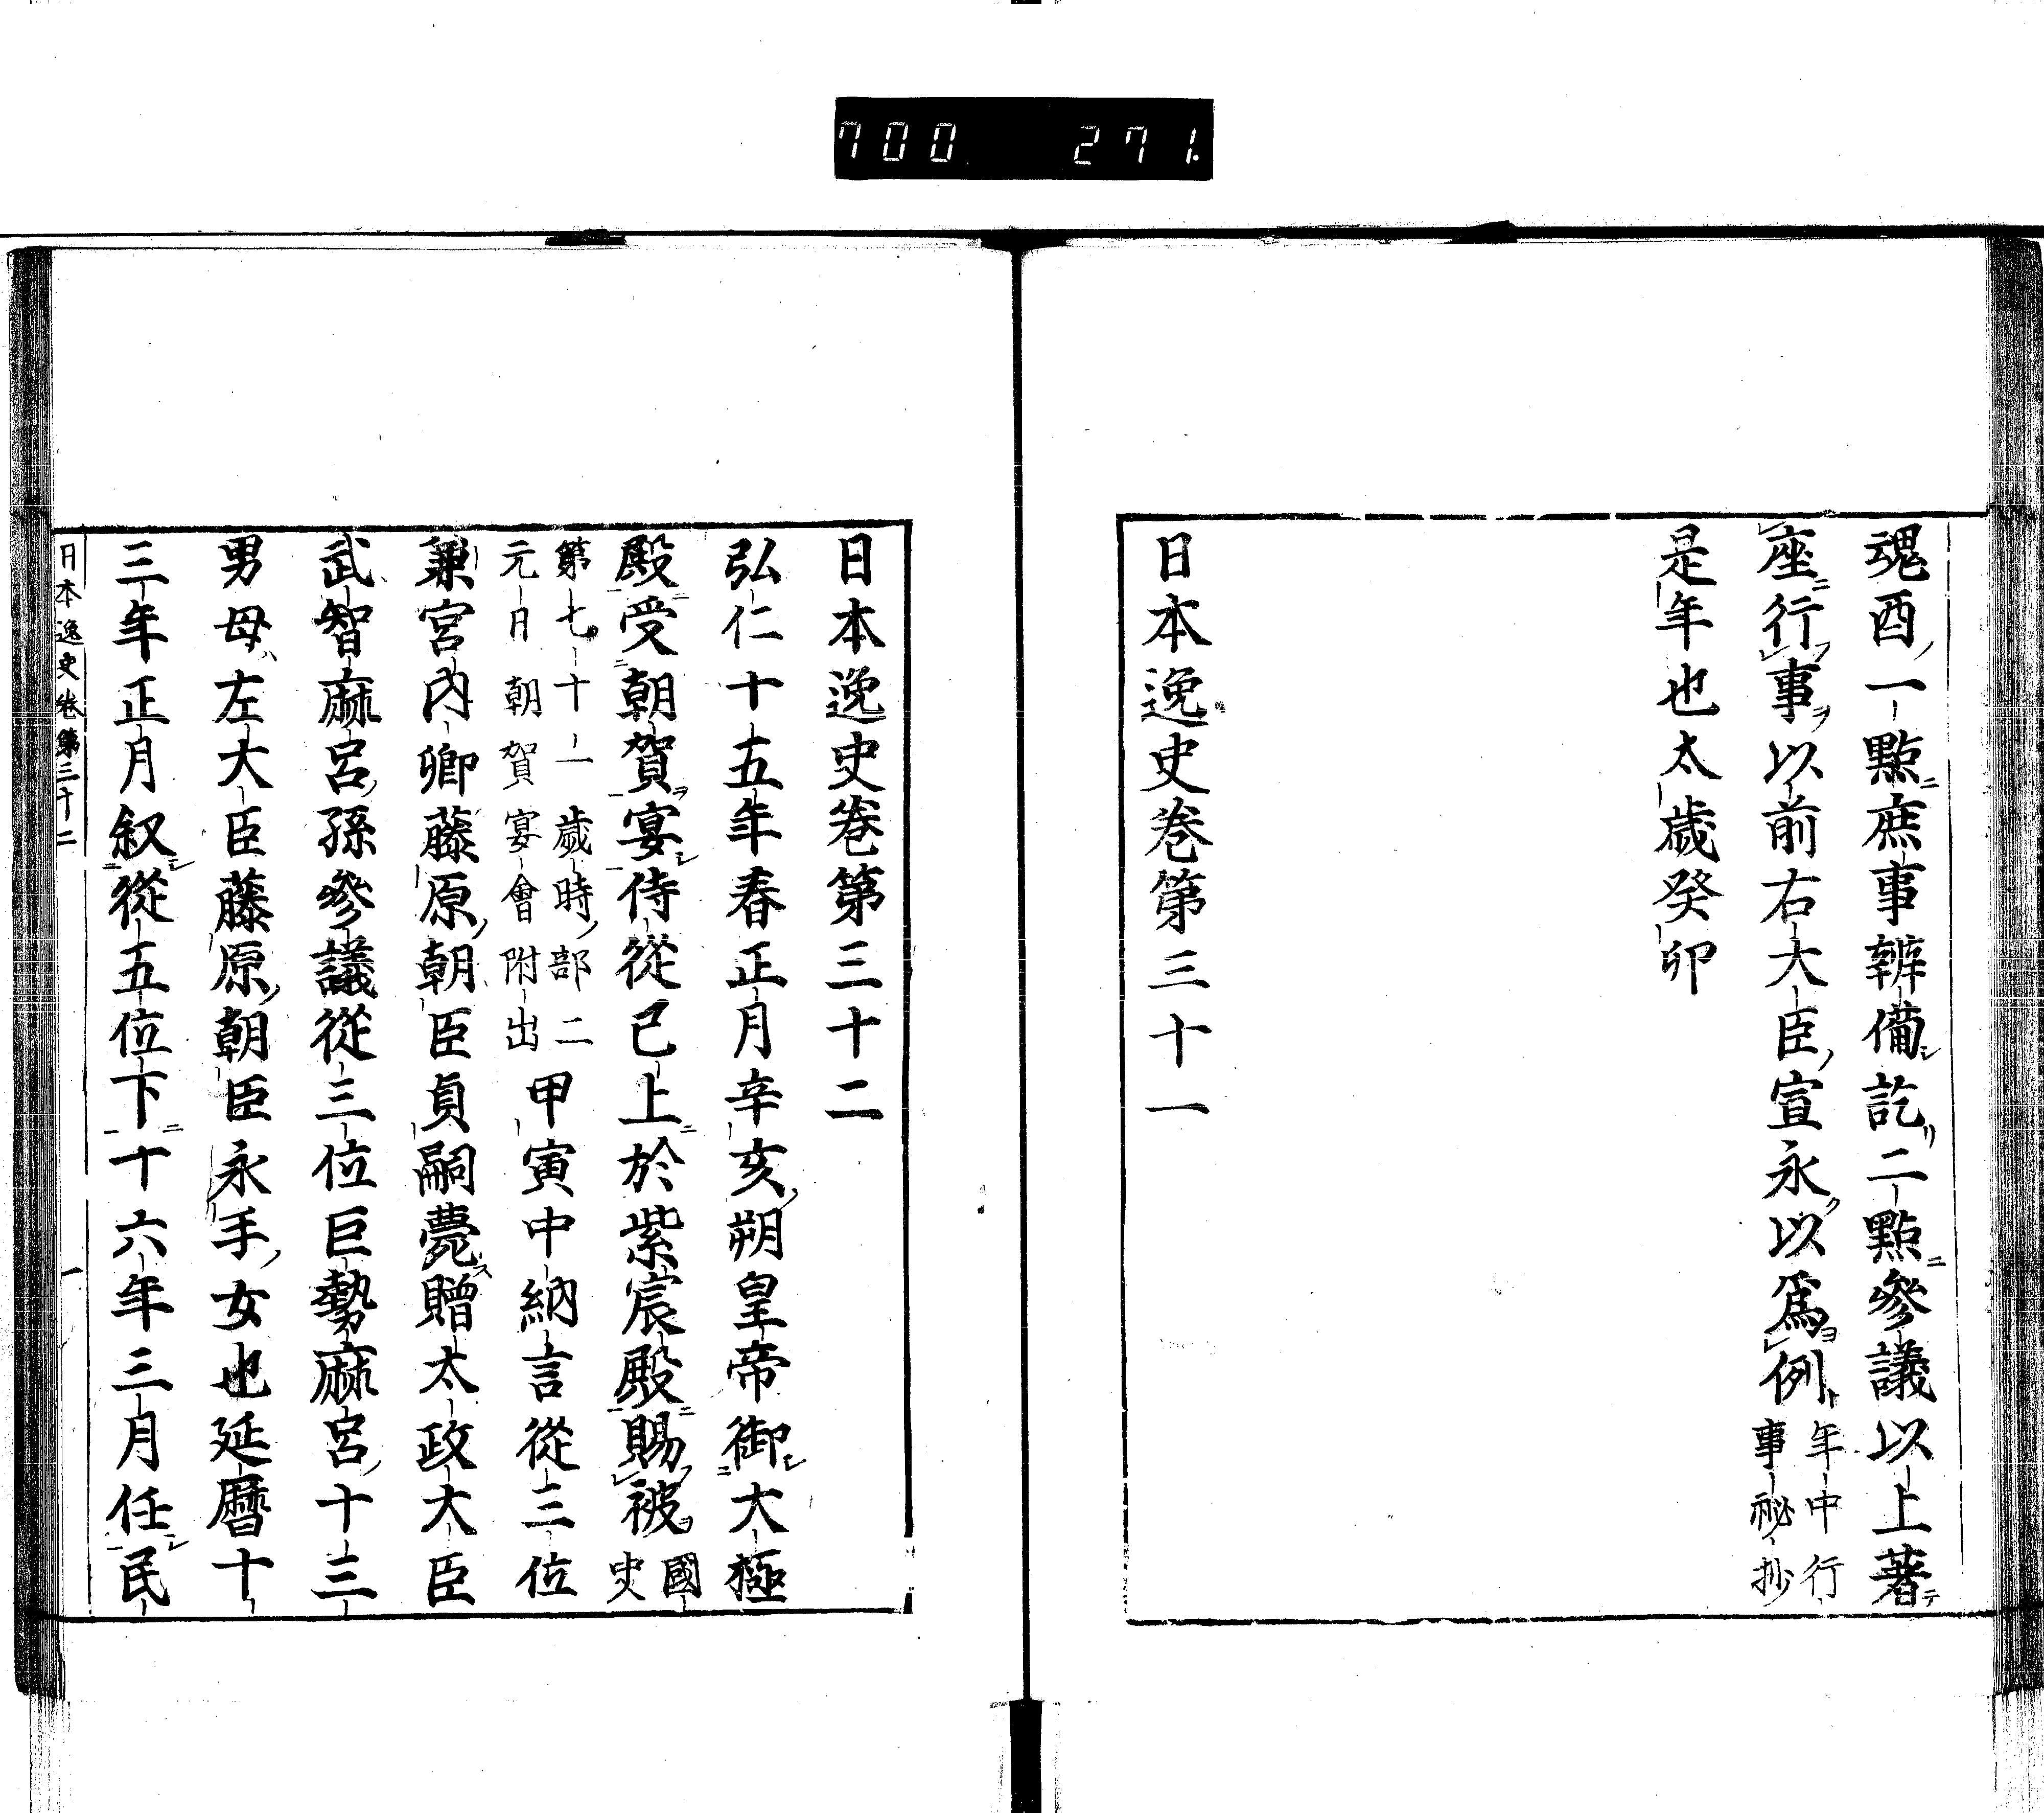 700 271.
魂酉一點庶事辨備訖二點參議以上著
座行事以前右大臣宣永以爲例年中行
事祕抄
是年也太歲癸卯
日本逸史卷第三十一
日本逸史卷第三十二
弘仁十五年春正月辛亥朔皇帝御大極
殿受朝賀宴侍從已上於紫宸殿賜被國
史
第七十一歲時部二
元日朝賀宴會附出
甲寅中納言從三位
兼宮內卿藤原朝臣貞嗣薨贈太政大臣
武智麻呂孫參議從三位巨勢麻呂十三
男母左大臣藤原朝臣永手女也延曆十
三年正月叙從五位下十六年三月任民
日本逸史卷第三十二 一